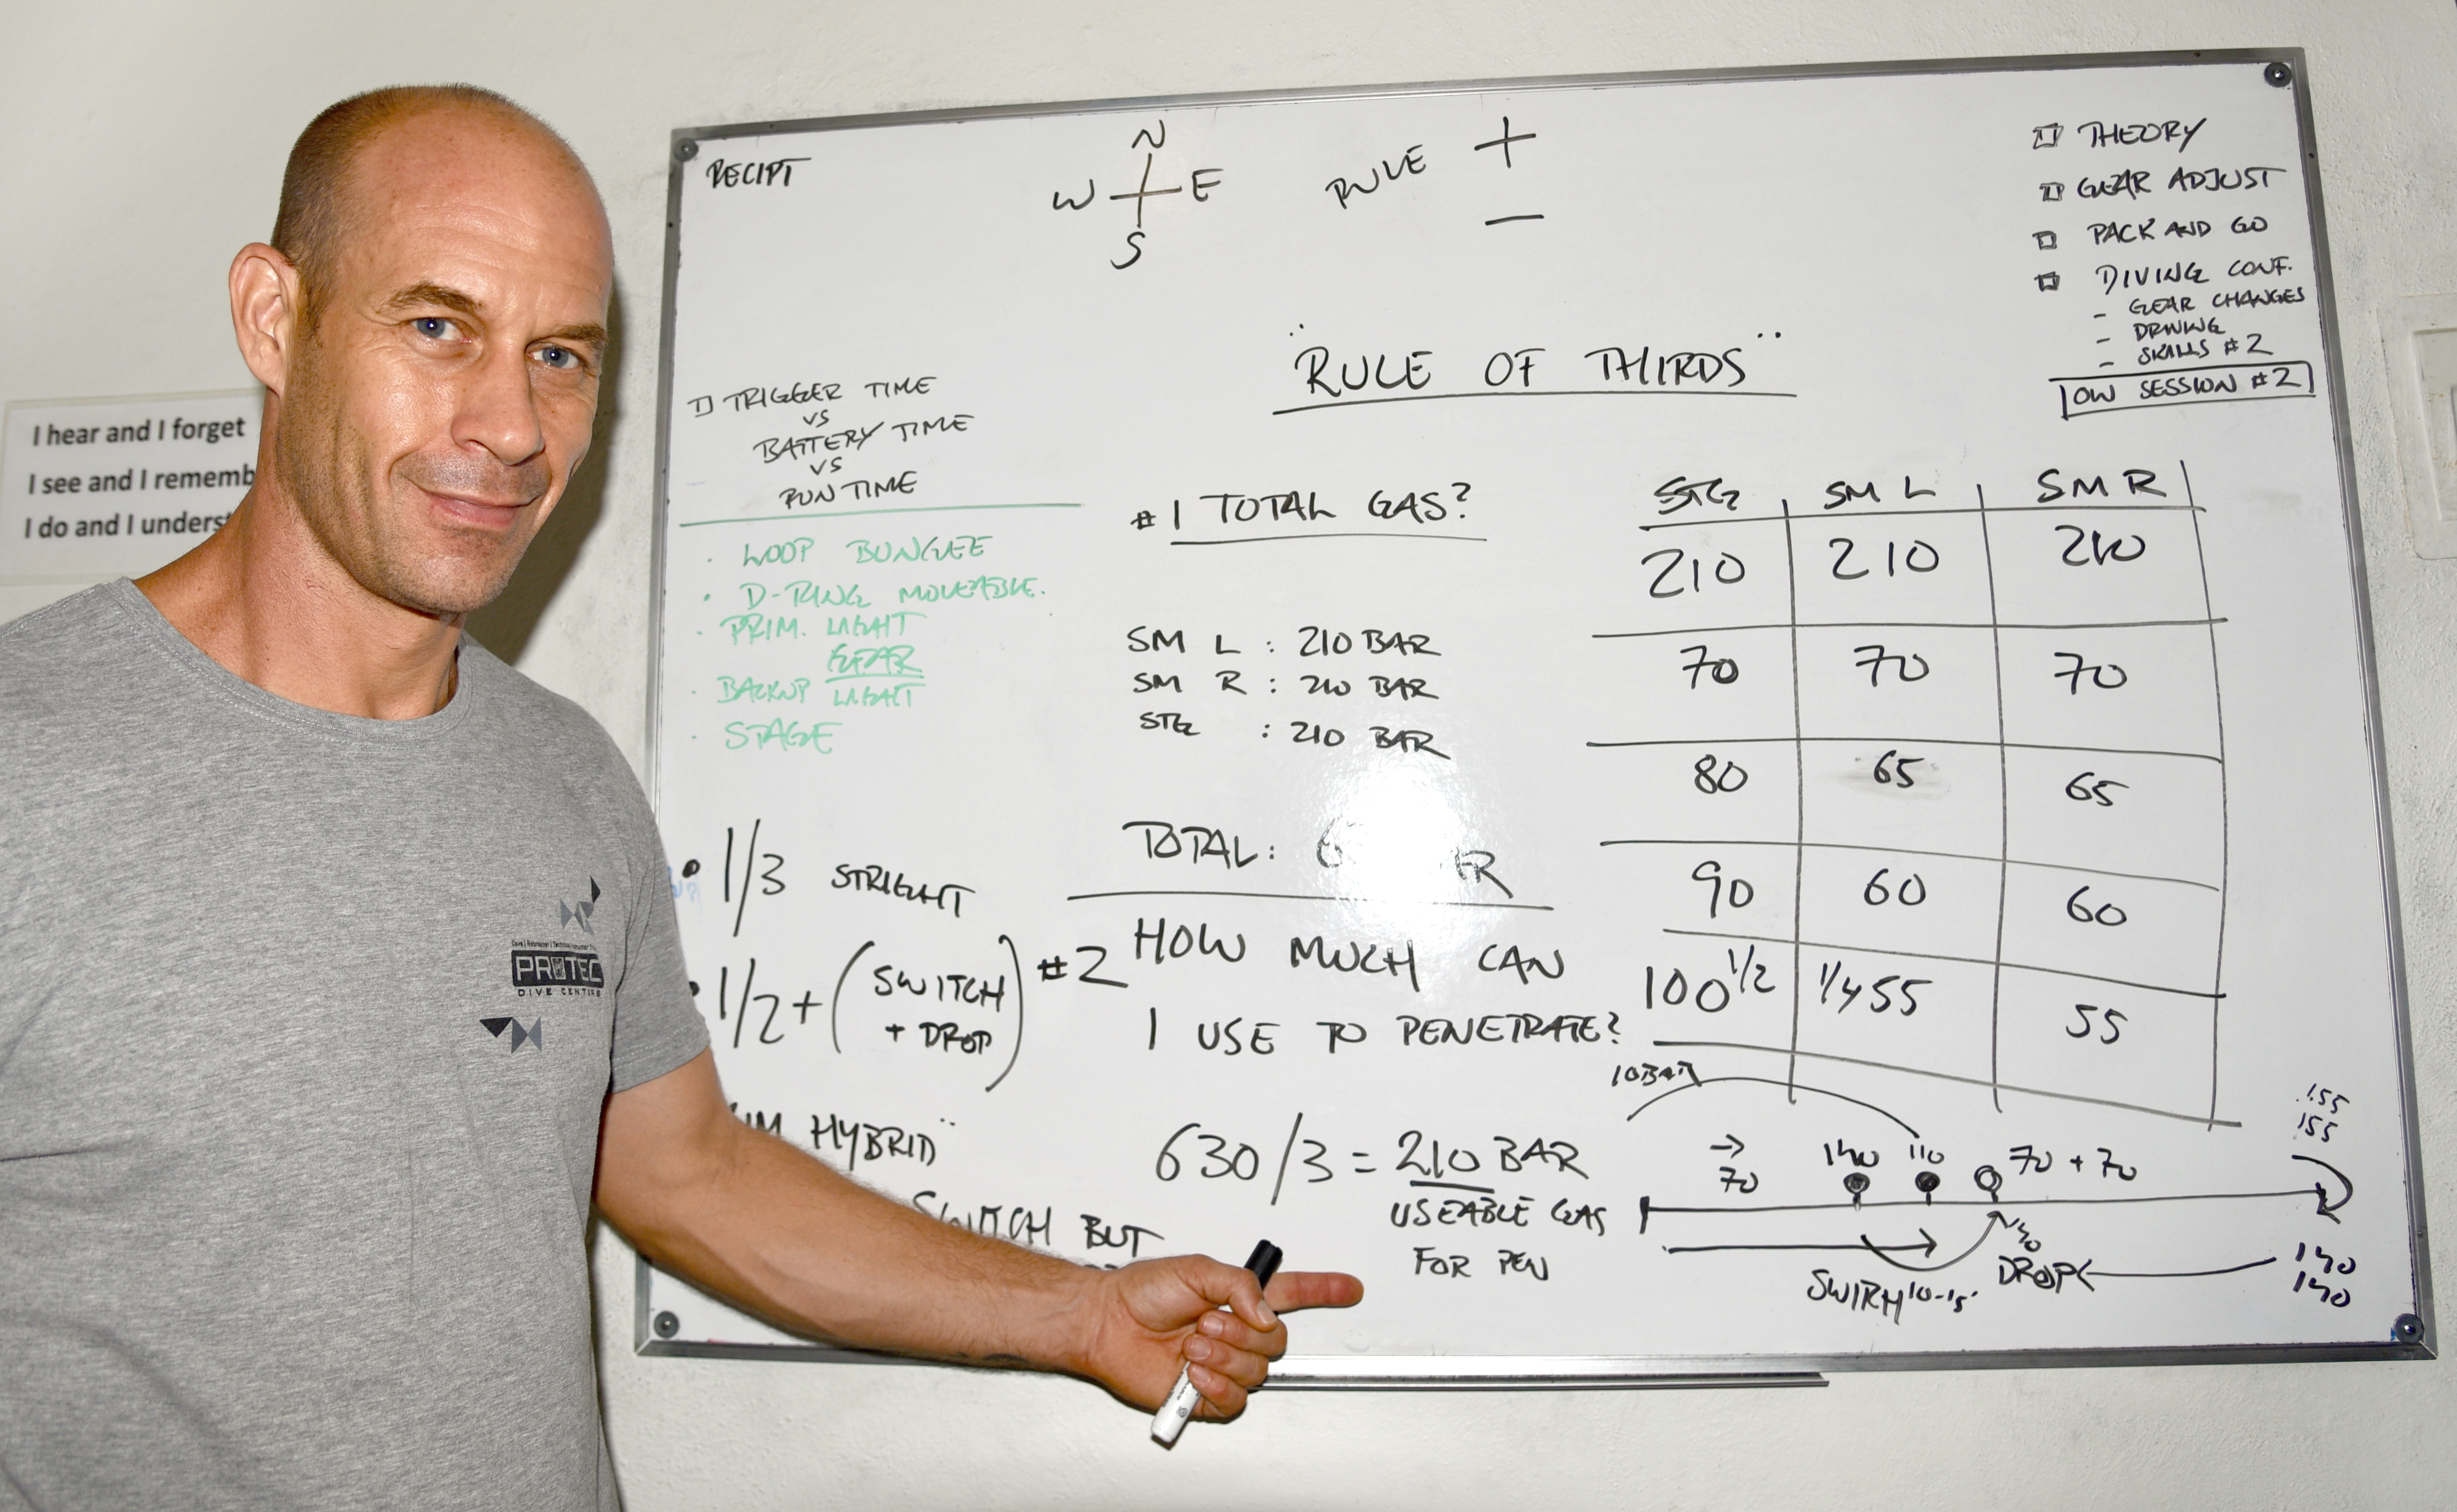 I hear and I forget
I see and I rememb
I do and I underst
RECIPT
N
W E
S
RULE + −
THEORY
GEAR ADJUST
PACK AND GO
DIVING CONF.
- GEAR CHANGES
-
- SKILLS #2
OW SESSION #2
"RULE OF THIRDS"
1) TRIGGER TIME
VS
BATTERY TIME
VS
RUN TIME
· LOOP BUNGEE
· D-RING MOVEABLE.
· PRIM. LIGHT
GEAR
· BACKUP LIGHT
· STAGE
• 1/3 STRIGHT
• 1/2 + (SWITCH
+ DROP)
HYBRID"
SWITCH BUT
#1 TOTAL GAS?
SM L : 210 BAR
SM R : 210 BAR
STG : 210 BAR
TOTAL: 6
#2 HOW MUCH CAN
I USE TO PENETRATE?
630/3 = 210 BAR
USEABLE GAS
FOR PEN
STG SM L SM R
210 210 210
70 70 70
80 65 65
90 60 60
100 1/2 1/4 55 55
10 BAR
155
155
→
70 140 110 70 + 70
140
SWITCH 10-15'
DROP
140
140
PROTEC
DIVE CENTERS